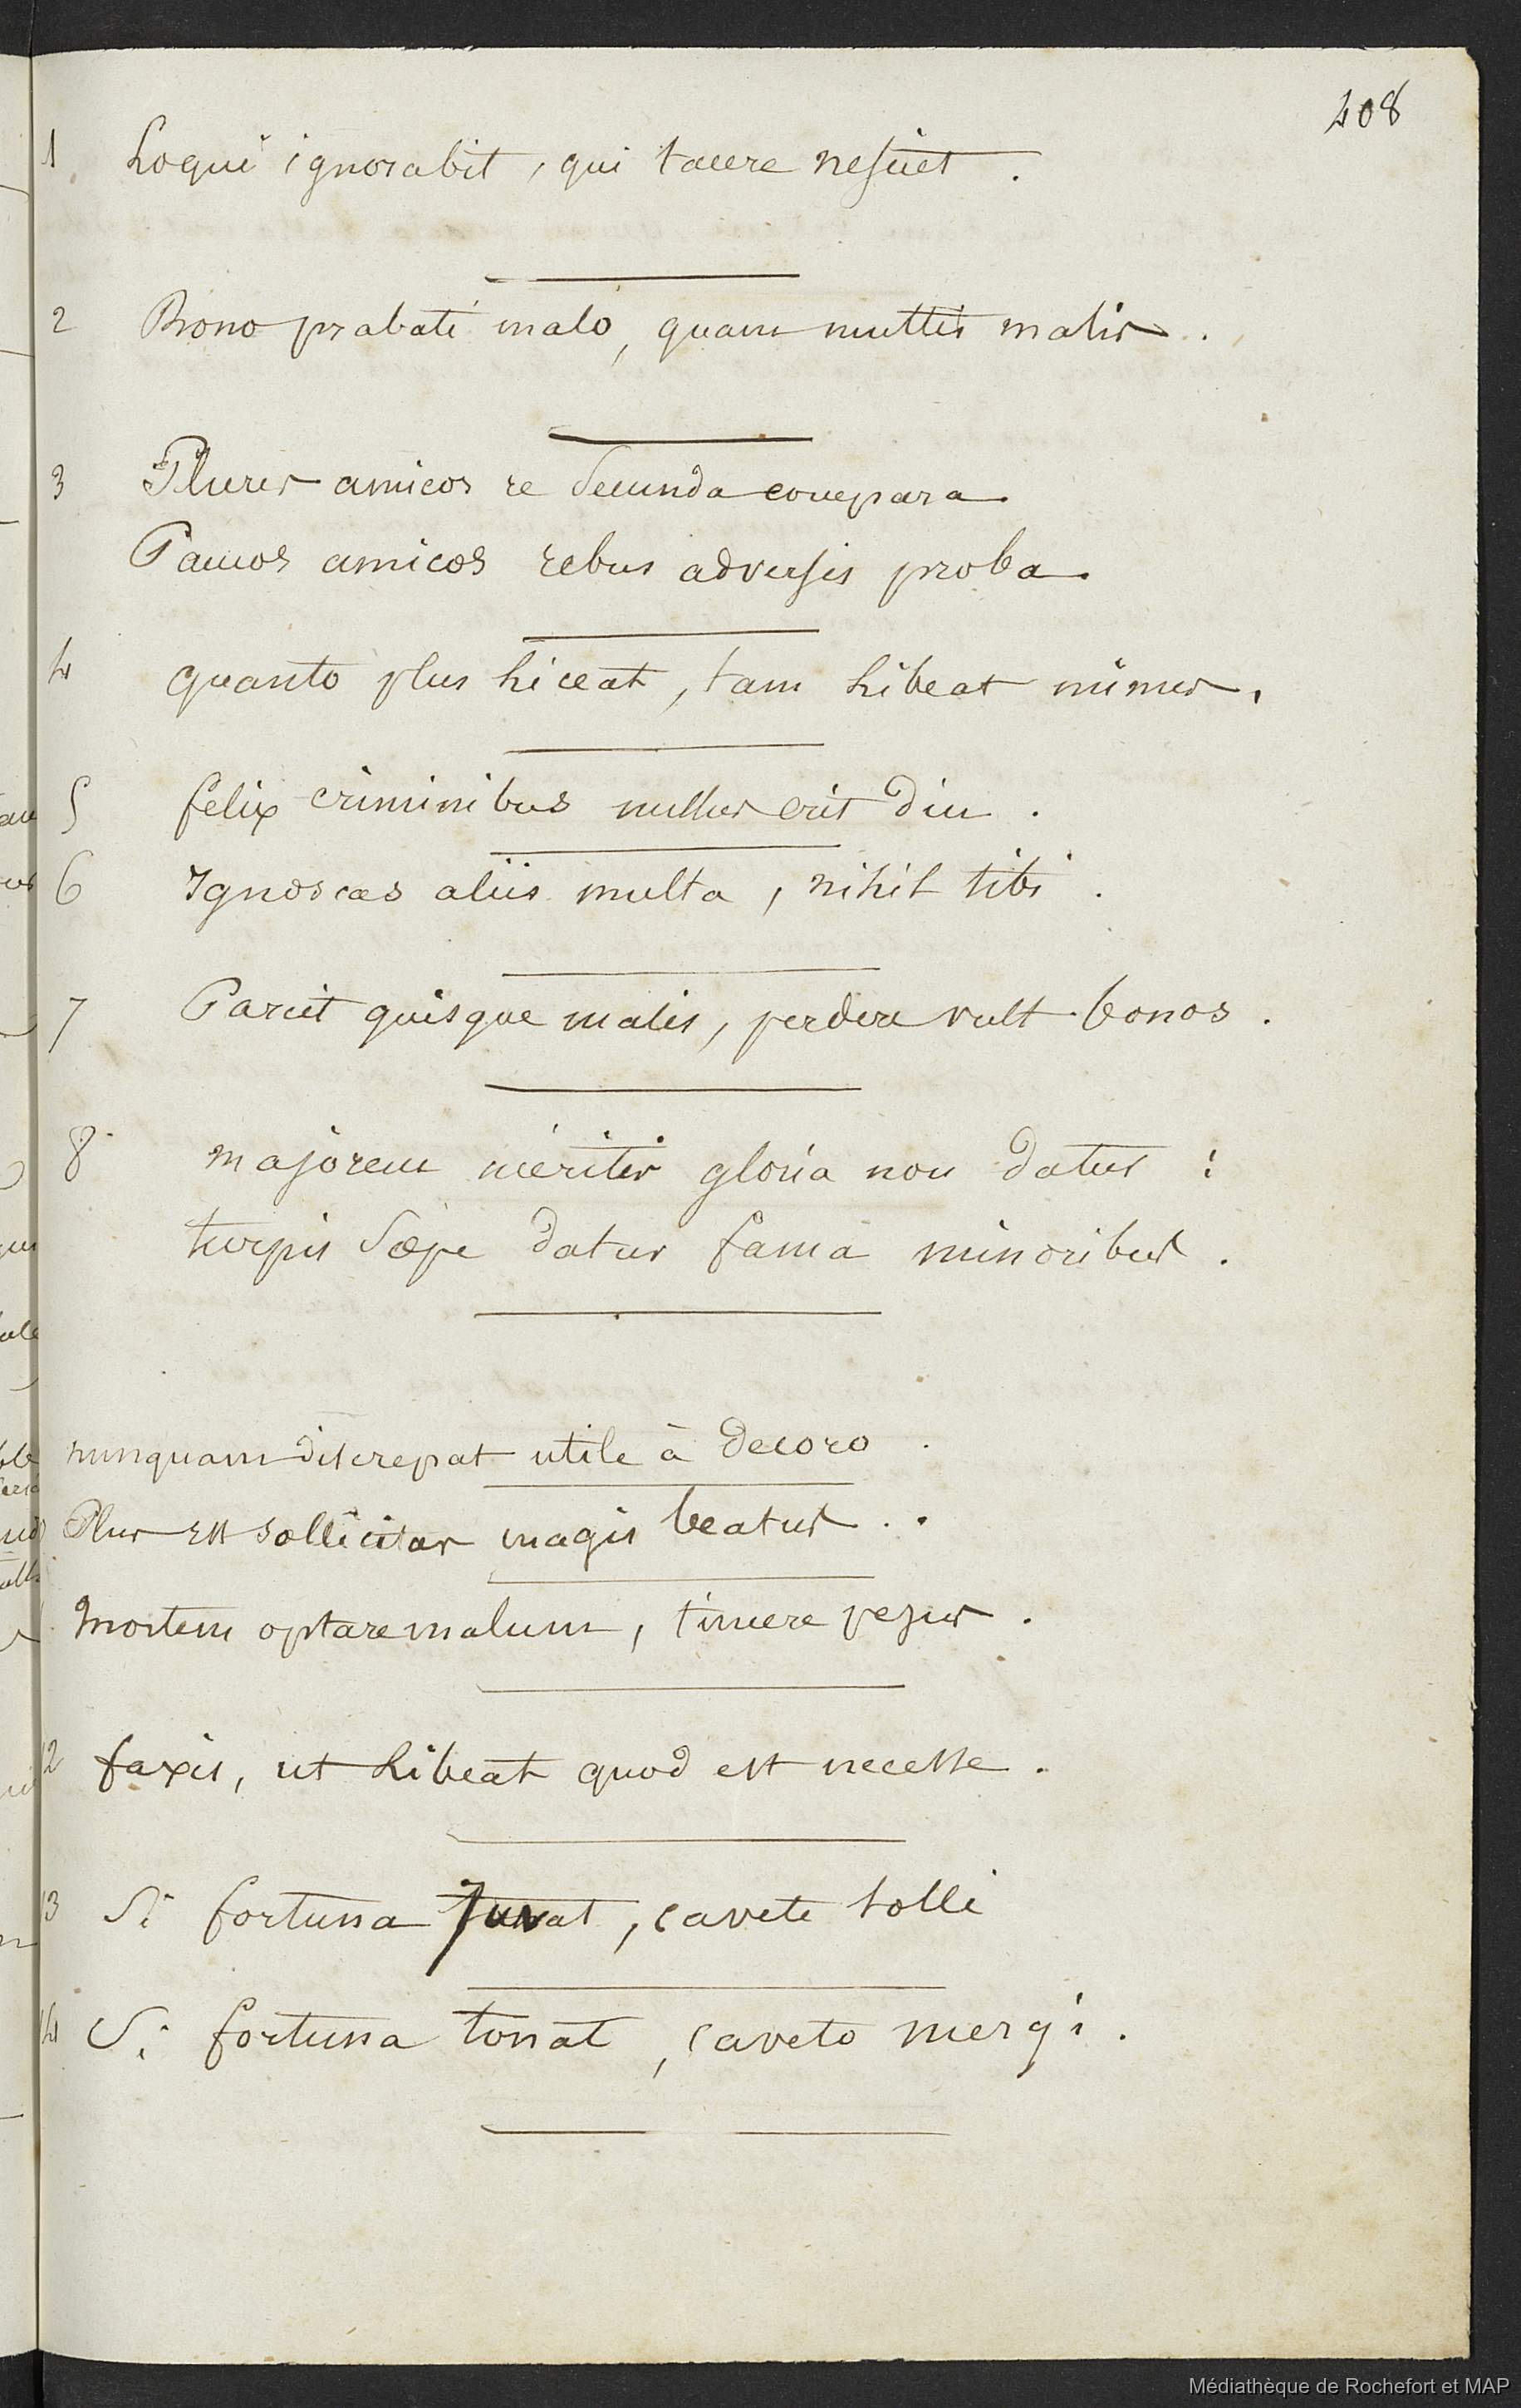 408
1 Loqui ignorabit, qui tacere nesciet.
2 Bono probati malo, quam multis malis.
3 Plures amicos re secunda compara
Paucos amicos rebus adversis proba.
4 quanto plus liceat, tam libeat minus.
5 felix criminibus nullus erit diu.
6 Ignoscas aliis multa, nihil tibi.
7 Parcit quisque malis, perdere vult bonos.
8 majorem meritis gloria non datur :
turpis sæpe datur fama minoribus.
nunquam discrepat utile à decoro.
Plus est sollicitas magis beatus..
Mortem optare malum, timere pejus.
12 faxis, ut libeat quod est necesse.
13 Si fortuna Juvat, cavete tolli
14 Si fortuna tonat, caveto mergi.
Médiathèque de Rochefort et MAP